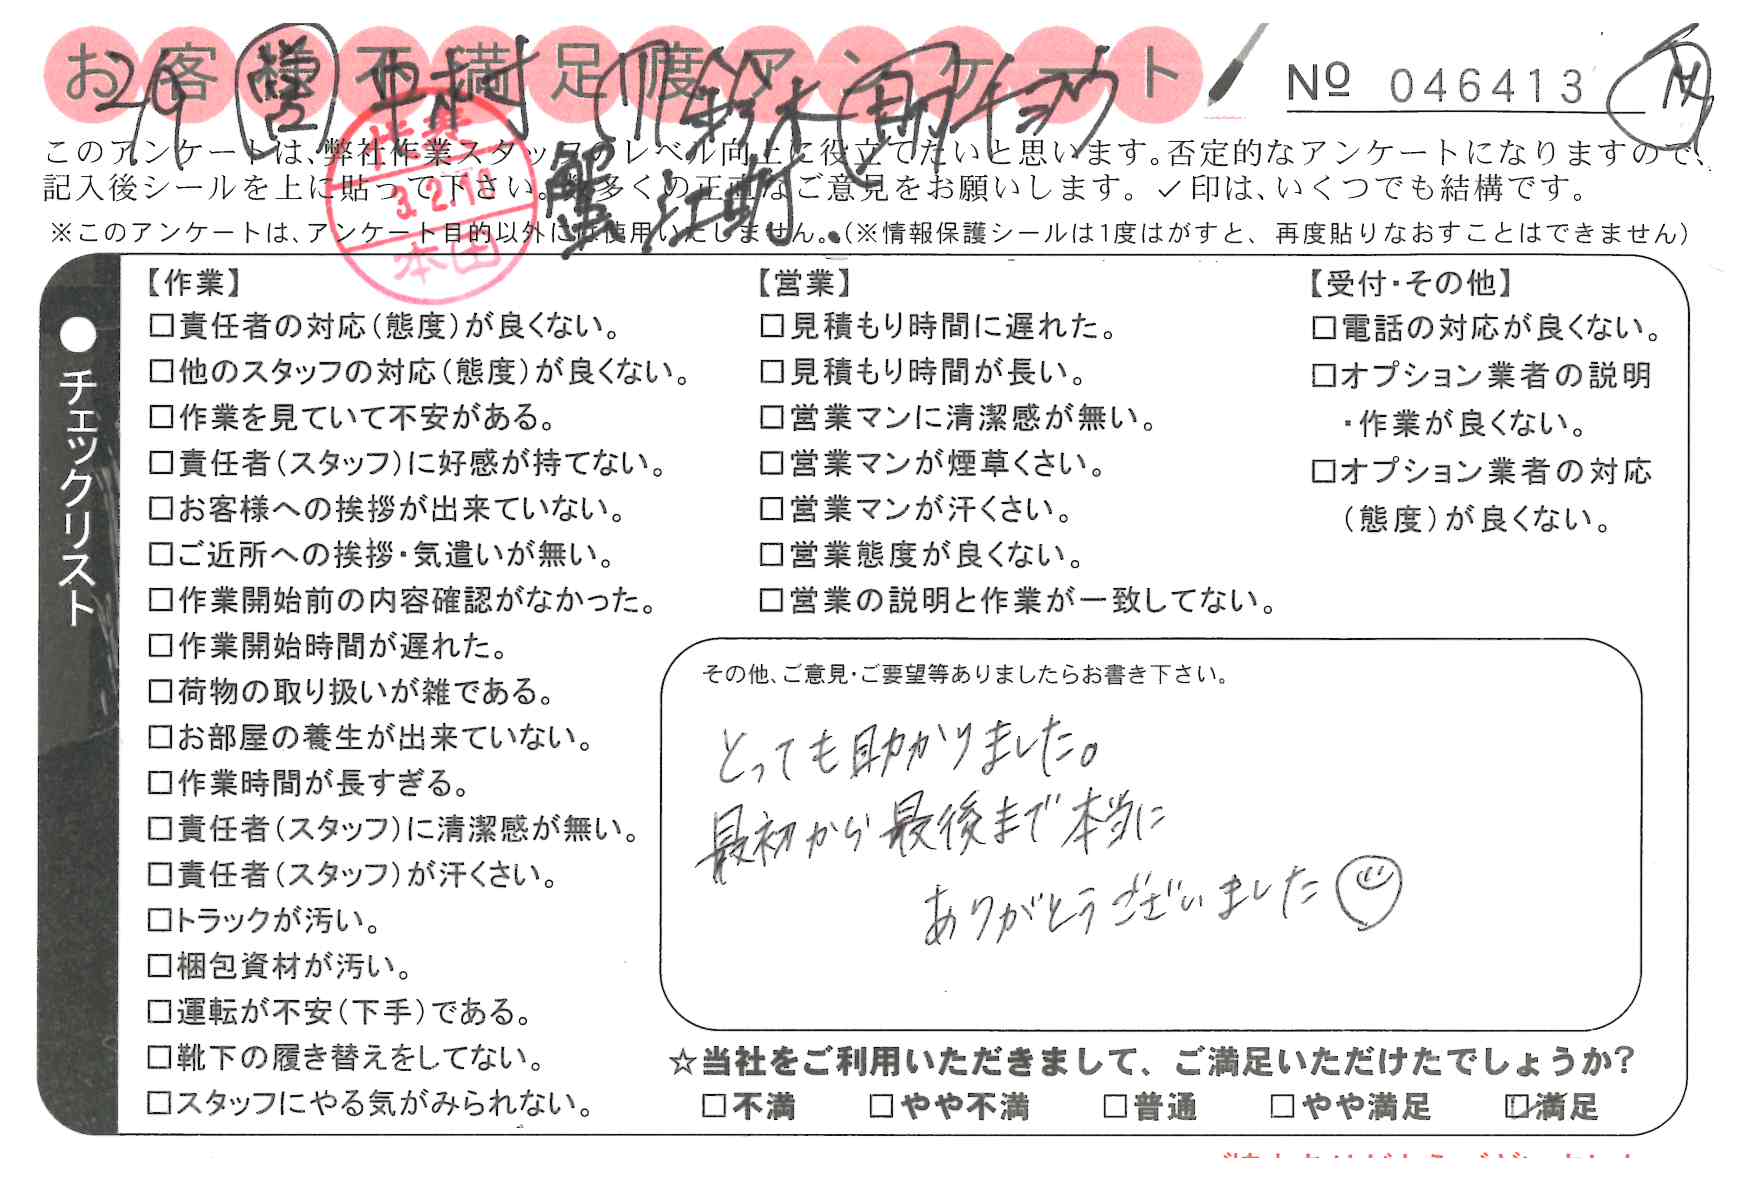 お客様不満足度アンケート
№ 046413
2/9 営 中村 作 鈴木 助 キョウ
このアンケートは、弊社作業スタッフのレベル向上に役立てたいと思います。否定的なアンケートになりますので、
記入後シールを上に貼って下さい。数多くの正直なご意見をお願いします。✓印は、いくつでも結構です。
※このアンケートは、アンケート目的以外には使用いたしません。(※情報保護シールは1度はがすと、再度貼りなおすことはできません)
作業
3.2.10
本田
蟹江町
●チェックリスト
【作業】
□責任者の対応(態度)が良くない。
□他のスタッフの対応(態度)が良くない。
□作業を見ていて不安がある。
□責任者(スタッフ)に好感が持てない。
□お客様への挨拶が出来ていない。
□ご近所への挨拶・気遣いが無い。
□作業開始前の内容確認がなかった。
□作業開始時間が遅れた。
□荷物の取り扱いが雑である。
□お部屋の養生が出来ていない。
□作業時間が長すぎる。
□責任者(スタッフ)に清潔感が無い。
□責任者(スタッフ)が汗くさい。
□トラックが汚い。
□梱包資材が汚い。
□運転が不安(下手)である。
□靴下の履き替えをしてない。
□スタッフにやる気がみられない。
【営業】
□見積もり時間に遅れた。
□見積もり時間が長い。
□営業マンに清潔感が無い。
□営業マンが煙草くさい。
□営業マンが汗くさい。
□営業態度が良くない。
□営業の説明と作業が一致してない。
【受付・その他】
□電話の対応が良くない。
□オプション業者の説明
・作業が良くない。
□オプション業者の対応
(態度)が良くない。
その他、ご意見・ご要望等ありましたらお書き下さい。
とっても助かりました。
最初から最後まで本当に
ありがとうございました
☆当社をご利用いただきまして、ご満足いただけたでしょうか?
□不満 □やや不満 □普通 □やや満足 ☑満足